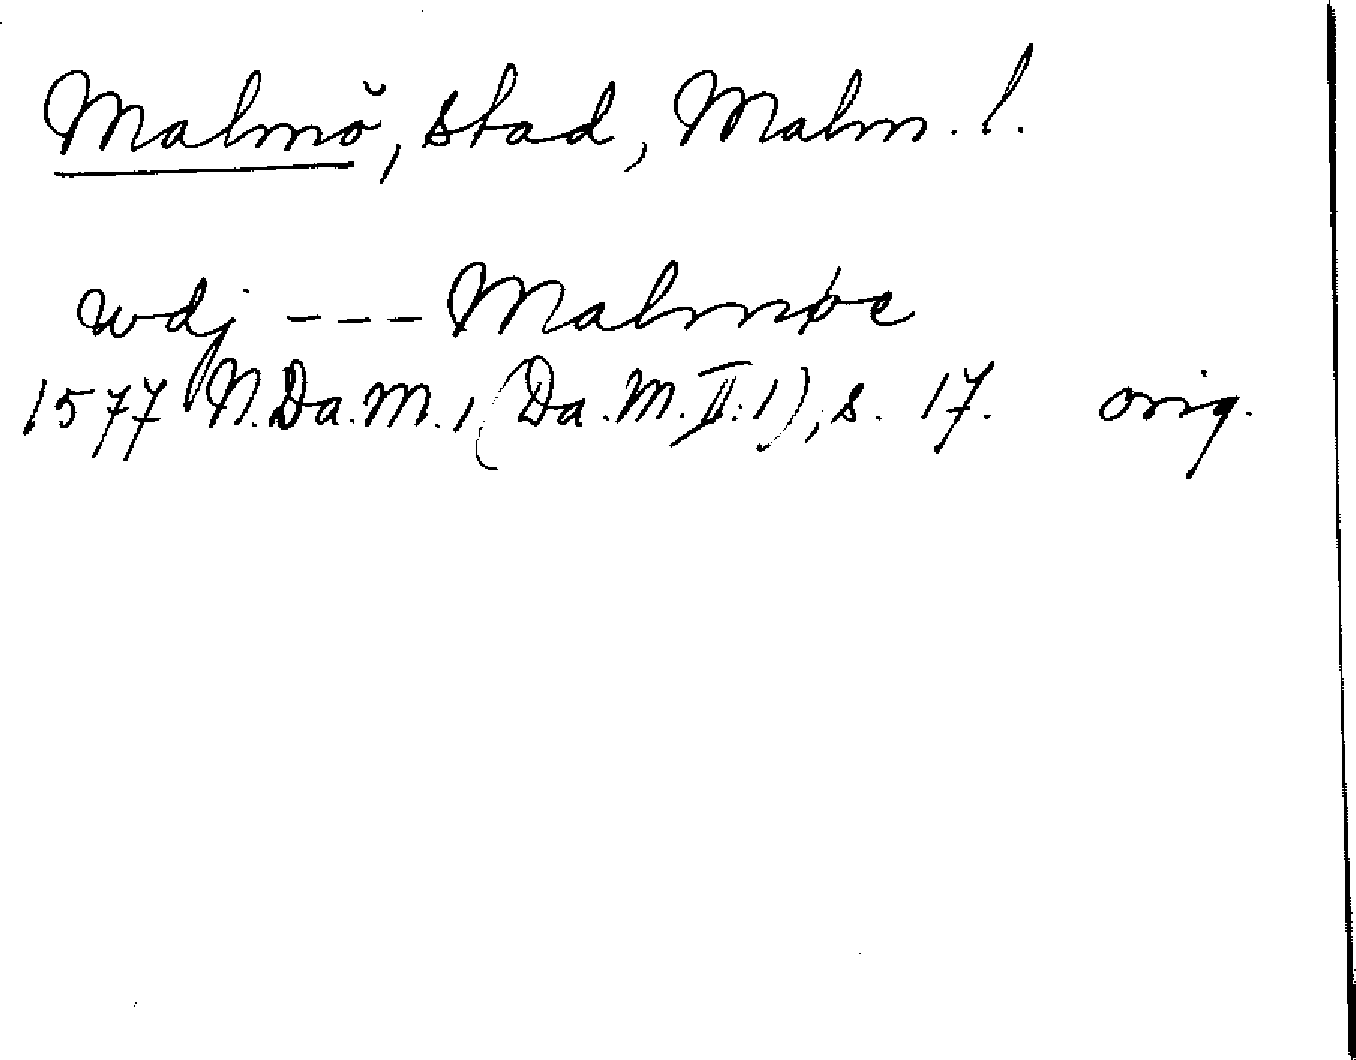 Malmö, stad, Malm. l.
wdj --- Malmøe
1577 N.Da.M. 1 (Da.M. II:1), s. 17. orig.